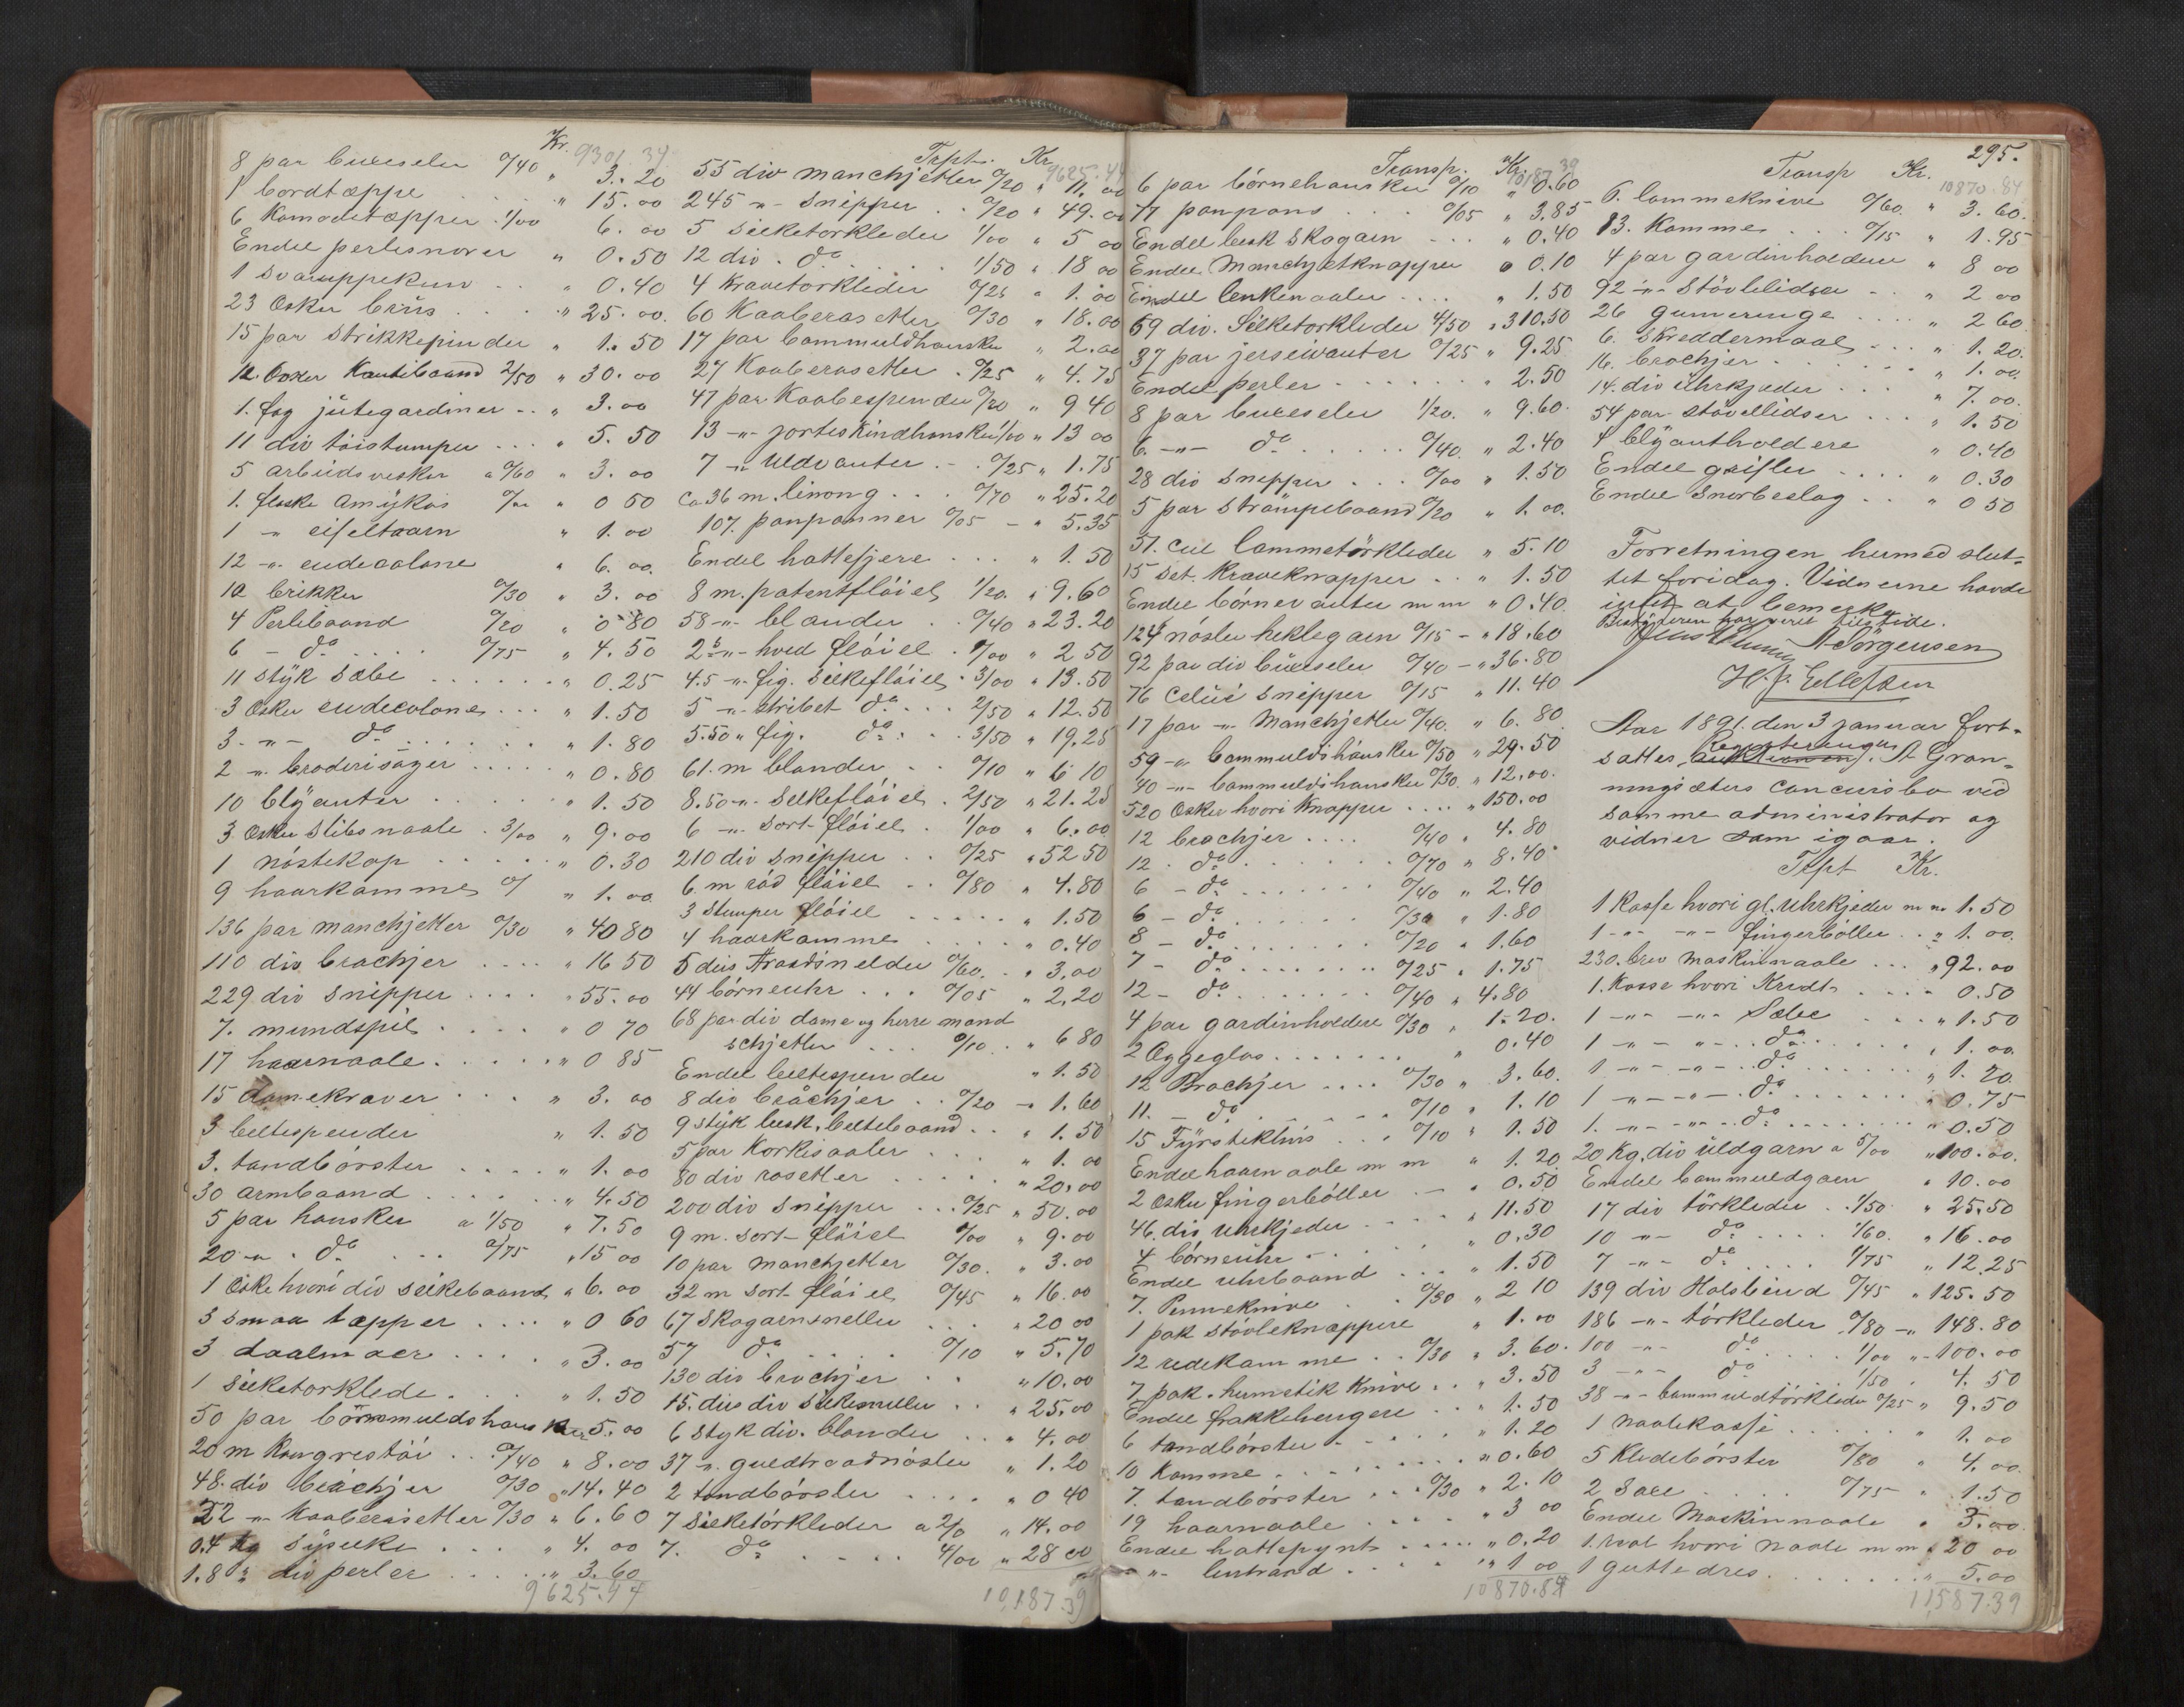 Kr. 9301.34
8 par buxeseler 0/40 " 3.20
1 bordtæppe " 15.00
6 Komodetæpper 1/00 6.00
Endel perlesnorer " 0.50
1 svampekurv " 0.40
23 Æsker brüs " 25.00.
15 par Strikkepinder " 1.50
12. boxer Kantibaand 2/50 " 30.00
1. fag jütegardiner " 3.00
11 div töistumper 5.50
5 arbeidsvesker a 0/60 " 3.00
1. flaske amykos " 0 50
1 -"- eifeltaarn " 1.00
12 -"- eudecolone " 6.00.
10 brikker 0/30 " 3.00
4 Perlebaand 0/20 " 0 80
6 - do 0/75 " 4.50
11 styk sæbe " 0.25
3 Æsker eudecolone " 1.50
3. -"- do " 1.80
2 -"- broderisager " 0.80
10 blyanter " 1.50
3 Æsker Slibsnaale 3/00 " 9.00
1 nöstekop " 0.30
9 haarkamme 0/ " 1.00
136 par manchjetter 0/30 " 40 80
110 div brochjer " 16 50
229 div snipper " 55.00
7. mundspil " 0 70
17 haarnaale " 0 85
15 damekraver " 3.00
3 beltespender " 1.50
3. tandbörster " 1.00
30 armbaand " 4.50
5 par hansker a 1/50 " 7.50
20 -"- do 0/75 " 15 00
1 Æske hvori div silkebaand " 6.00
3 smaa tæpper " 0 60
3 daalmaer " 3.00
1 silketorklede " 1.50
50 par bommuldshansker 5.00
20 m Kongrestöi 0/40 " 8.00
48. div brochjer 0/30 " 14.40
22 -"- Kaaberosetter 0/30 " 6.60
0.4 kg sysilke " 4.00
1.8 " div perler " 3.60
9625.44
Trpt. Kr. 9625.44
55 div manchjetter 0/20 " 11.00
245 -"- snipper 0/20 " 49.00
5 silketorkleder 1/00 " 5 00
12 div. do 1/50 " 18 00
4 Kravetorkleder 0/25 " 1.00
60 Kaaberosetter 0/30 " 18.00
17 par bommuldhansker " 2.00
27 Kaaberosetter 0/25 " 4.75
47 par Kaabespender 0/20 " 9 40
13 -"- sorteskindhansker 1/00 " 13 00
7 -"- Uldvanter 0/25 " 1.75
Ca 36 m. linong 0/70 " 25.20
107. panponner 0/05 - " 5.35
Endel hattefjere " 1.50
8 m. patentflöiel 1/20. " 9.60
58 -"- blonder 0/40 " 23.20
2 5 -"- hvid flöiel 1/00 " 2 50
4.5 -"- fig. silkeflöiel 3/00 " 13.50
5 -"- stribet do 2/50 " 12.50
5.50 " fig. do 3/50 " 19.25
61. m blonder 0/10 " 6 10
8.50 -"- silkeflöiel 2/50 " 21.25
6 -"- sort flöiel 1/00 " 6.00
210 div snipper 0/25 " 52 50
6. m röd flöiel 0/80 " 4.80
3 stumper flöiel " 1.50
4 haarkamme " 0.40
5 dus Traadsnelder 0/60. " 3.00
44 börneuhr 0/05 " 2.20
68 par div dame og herre mand
schjetter 0/10 " 6 80
Endel beltespender " 1.50
8 div bråchjer 0/20 - 1.60
9 styk besk. beltebaand " 1.50
5 par Korksaaler " 1.00
80 div rosetter " 20.00
200 div snipper 0/25 " 50.00
9 m. sort flöiel 1/00 " 9.00
10 par manchjetter 0/30. " 3.00
32 m sort flöiel 0/45 " 16.00
67 Skogarnsneller " 20 00
57 do 0/10 " 5.70
130 div brochjer " 10.00
15. dus div silkesneller " 25.00
6 styk div. blonder " 4.00
37 -"- guldtraadnösler " 1.20
2 tandbörster " 0 40
7 silketörkleder a 2/0 " 14.00
7. do 4/00 " 28 00
10,187.39
Transp. Kr. 10187.39
6 par börnehansker 0/10 " 0.60
77 panpons 0/05 " 3.85
Endel besk Skogarn " 0.40
Endel Manchjetknapper " 0.10
Endel lenkenaaler " 1.50
69 div. Silketorkleder 4/50 " 310.50
37 par jerseivanter 0/25 " 9.25
Endel perler " 2.50
8 par buxeseler 1/20. " 9.60.
6. -"- do 0/40. " 2.40
28 div snipper 0/00 " 1.50
5 par strömpebaand 0/20 " 1.00.
51. cul lommetörkleder " 5.10
15 set. Kraveknapper " 1.50
Endel börnevanter m m " 0.40.
124 nösler heklegarn 0/15 - " 18.60
92 par div büxeseler 0/40 - " 36.80
76 celüi snipper 0/15 " 11.40
17 par -"- Manchjetter 0/40. " 6.80
59 -"- bommuldshansker 0/50 " 29.50
40 -"- bommuldshansker 0/30. " 12.00.
520 Æsker hvori Knapper " 150.00
12 brochjer 0/40 " 4.80
12. do 0/70 " 8.40
6 - do 0/40 " 2.40
6 - do 0/30 " 1.80
8 - do 0/20 " 1.60
7 - do 0/25 " 1.75
12 - do 0/40 " 4.80
4 par gardinholdere 0/30 " 1.20.
2 Æggeglas " 0.40
12 Brochjer 0/30 " 3.60.
11. - do 0/10 " 1.10
15 Fyrstikhus 0/10 " 1.50
Endel haarnaale m m " 1.20
2 Æsker fingerböller " 0.50
46. div uhrkjeder " 11.50
4 börneuhr " 0.30
Endel uhrbaand " 1.50
7. Penneknive 0/30 " 2 10
1 pak stövleknappere " 1.00
12 redekamme 0/30 " 3.60.
7. pak. humetik Knive " 3.50
Endel frakkehengere " 1.50
6 tandbörster " 1.20
10 Kamme " 0.60
7. tandbörster 0/30 " 2.10
19 haarnaale " 3 00
Endel hattepynt " 0.20
-"- lintraad " 1 00
10870.84
295.
Transp Kr. 10870.84
6. lommeknive 0/60. " 3.60.
13. Kamme 0/15 " 1.95
4 par gardinholdere " 8 00
92 -"- Stövlelidser " 2 00
26 gumeringe " 2 60
6. Skreddermaal " 1.20.
16. brochjer " 1.00.
14. div uhrkjeder " 7.00.
54 par stövellidser " 1.50
4 blyantholdere " 0.40
Endel grifler " 0.30
Endel Snorbeslag " 0 50
Forretningen hermed slut-
tet foridag. Vidnerne havde
intet at bemerke.
Bestyreren har veret tilstede.
A Jörgensen
H. J. Ellefsen
Aar 1891. den 3 januar fort-
sattes Registreringen auktionen i A Gran-
ningsæters Concursbo ved
samme administrator og
vidner som igaar.
Trpt Kr.
1 Kasse hvori gl. Uhrkjeder m m 1.50
1 -"- -"- fingerböller " 1.00.
230. brev maskinnaale " 92.00
1. Kasse hvori Kridt 0.50
1 -"- -"- Sæbe " 1.50
1 -"- -"- do " 1.00.
1 -"- -"- do " 1.20.
1 -"- -"- do " 0.75
1. -"- -"- do " 0.50
20 Kg. div uldgarn a 5/00 " 100.00.
Endel bommuldgarn " 10.00
17 div törkleder 1/50 " 25.50
10 -"- do 1/60. " 16.00
7 -"- do 1/75 " 12.25
139 div Halsbind 0/45 " 125.50
186 -"- törkleder 0/80 - " 148.80
100 -"- do 1/00 " 100.00
3 -"- do 1/50 " 4.50
38 -"- bommuldtörkleder 0/25 " 9.50
1 Naalekasse " 1.00
5 Kledebörster 0/80 " 4.00.
2 Sace 0/75 " 1.50
Endel Maskinnaale " 3.00.
1. hvori naale m m " 20 00
1 guttedres " 5.00
11,587.39